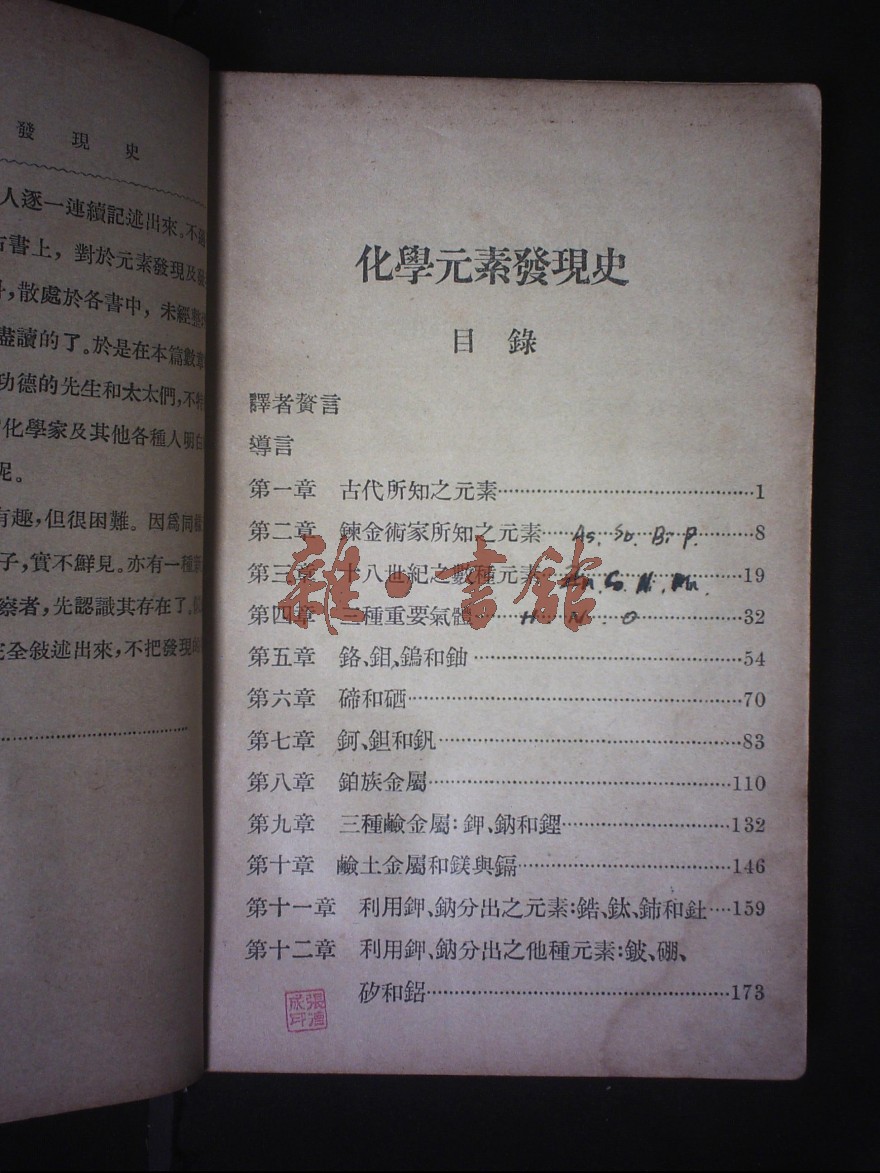 發現史
人逐一連續記述出來。不
古書上，對於元素發現及
，散處於各書中，未經整
盡讀的了。於是在本篇數
功德的先生和太太們，不
化學家及其他各種人明白
呢。
有趣，但很困難。因爲同
子，實不鮮見。亦有一種
察者，先認識其存在了。
完全敍述出來，不把發現的
化學元素發現史
目錄
譯者贅言
導言
第一章 古代所知之元素……1
第二章 鍊金術家所知之元素……As. Sb. Bi P.……8
第三章 十八世紀之數種元素……Co. Ni. Mn.……19
第四章 三種重要氣體……H N O……32
第五章 鉻、鉬、鎢和鈾……54
第六章 碲和硒……70
第七章 鈳、鉭和釩……83
第八章 鉑族金屬……110
第九章 三種鹼金屬：鉀、鈉和鋰……132
第十章 鹼土金屬和鎂與鎘……146
第十一章 利用鉀、鈉分出之元素：鋯、鈦、鈰和釷……159
第十二章 利用鉀、鈉分出之他種元素：鈹、硼、
矽和鋁……173
雜·書館